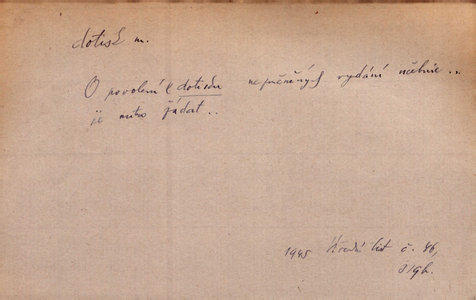 dotisk m.
O povolení k dotisku nezměněných vydání učebnic...
je nutno žádat..
1945 Úřední list č. 46,